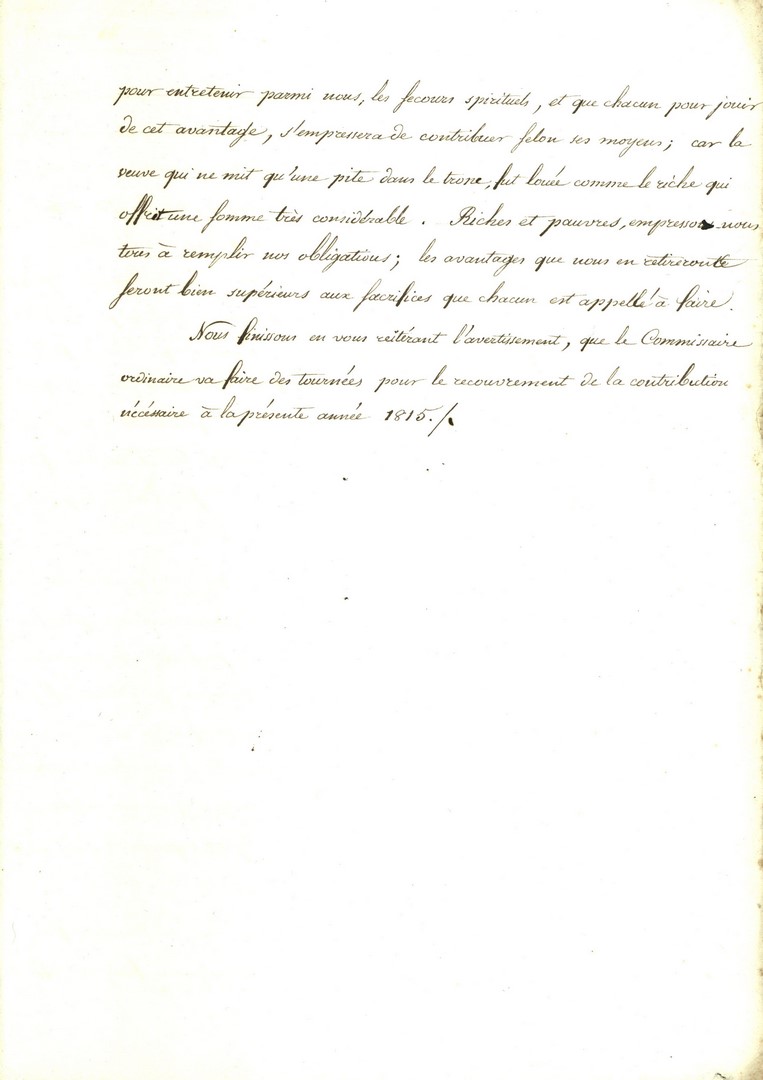 pour entretenir parmi nous, les secours spirituels, et que chacun pour jouir
de cet avantage, s'empressera de contribuer selon ses moyens; car la
veuve qui ne mit qu'une pite dans le tronc, fut louée comme le riche qui
offrit une somme très considérable. Riches et pauvres, empressons-nous
tous à remplir nos obligations; les avantages que nous en retirerons
seront bien supérieurs aux sacrifices que chacun est appellé à faire.
Nous finissons en vous réitérant l'avertissement, que le Commissaire
ordinaire va faire des tournées pour le recouvrement de la contribution
nécéssaire à la présente année 1815./.